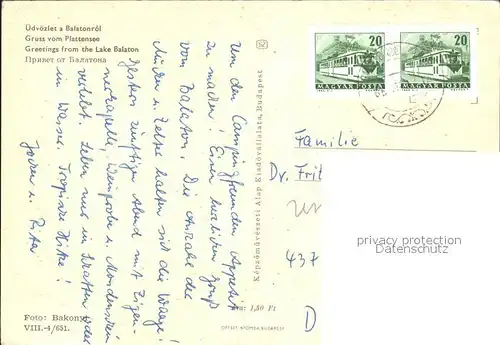 Üdvözlet a Balatonról
Gruss vom Plattensee
Greetings from the Lake Balaton
Привет от Балатона
Um den Campingfreunden Appetit
zu machen! Einen herzlichen Gruß
vom Balaton. Die Anzahl der
Mücken u. Zelte halten sich die Waage!
Gestern zünftigen Abend mit Zigeu-
nerkapelle, Weinprobe u. Mondschein
verlebt. Leben nur im Schatten oder
im Wasser. Tropische Hitze!
Jochen u. Rita
Foto: Bakonyi
VIII.-4/651.
52
Képzőművészeti Alap Kiadóvállalata, Budapest
Ára: 1,50 Ft
OFFSET NYOMDA, BUDAPEST
20
MAGYAR POSTA
20
MAGYAR POSTA
Familie
Dr. Frit
437
D
privacy protection
Datenschutz